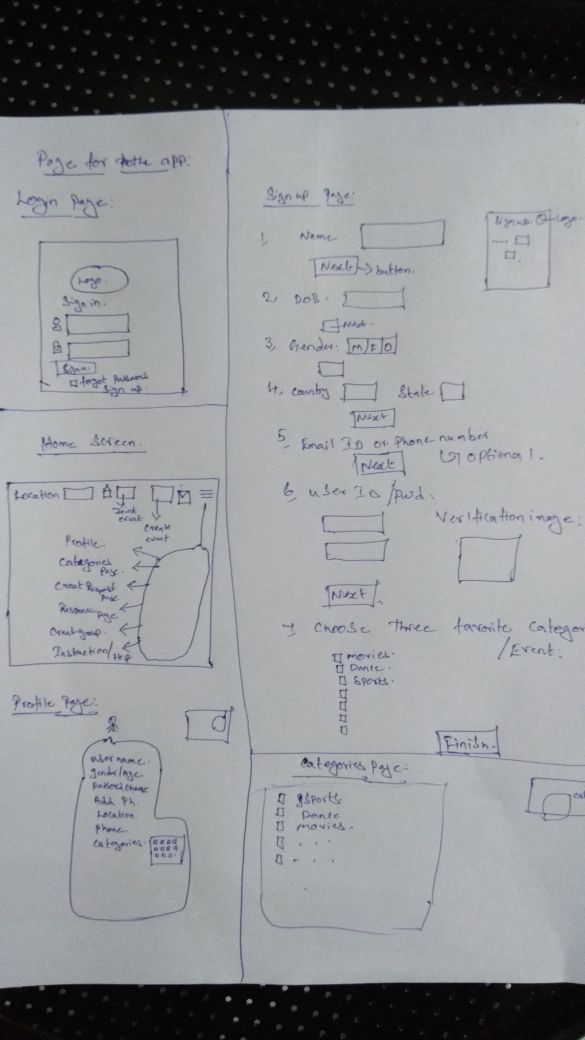 Page for the app:
Login Page:
Logo
Sign in.
Sign in
forgot Password
Sign up.
Home Screen.
Location
Joint event
Create event
Profile.
Categories Page.
Creat Request Page
Response Page
Creat group.
Instruction/Help
Profile Page:
user name.
gender/age
password change
Add Ph.
Location.
Phone
Categories.
Sign up Page:
Sign up Logo.
1, Name
Next → button.
2, DOB.
Next.
3, Gender: M F O
4, Country State
Next
5, Email ID or Phone number
Next optional.
6, user ID/pwd:
Verification image:
Next.
7 Choose three favorite Categor
/Event:
movies.
Dance.
Sports.
Finish.
Categories Page:
Sports
Dance
movies.
. . .
. . .